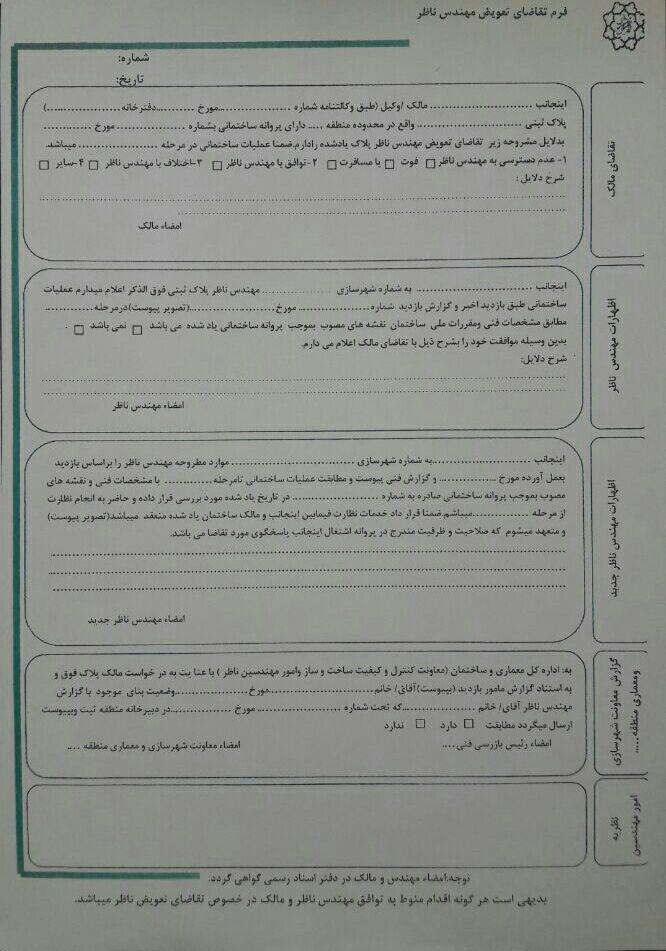 فرم تقاضای تعویض مهندس ناظر
شماره:
تاریخ:
تقاضای مالک
اینجانب .......................... مالک /وکیل (طبق وکالتنامه شماره ...................مورخ ..........دفترخانه ...................)
پلاک ثبتی .......................... واقع در محدوده منطقه ..... دارای پروانه ساختمانی بشماره .................. مورخ ............
بدلایل مشروحه زیر تقاضای تعویض مهندس ناظر پلاک یادشده رادارم.ضمنا عملیات ساختمانی در مرحله ..................... میباشد.
۱- عدم دسترسی به مهندس ناظر □ فوت □ یا مسافرت □ ۲-توافق با مهندس ناظر □ ۳-اختلاف با مهندس ناظر □ ۴-سایر □
شرح دلایل :
امضاء مالک
اظهارات مهندس ناظر
اینجانب .............................. به شماره شهرسازی .................. مهندس ناظر پلاک ثبتی فوق الذکر اعلام میدارم عملیات
ساختمانی طبق بازدید اخیر و گزارش بازدید شماره.................. مورخ......................(تصویر پیوست)درمرحله..............
مطابق مشخصات فنی ومقررات ملی ساختمان نقشه های مصوب بموجب پروانه ساختمانی یاد شده می باشد □ نمی باشد □ .
بدین وسیله موافقت خود را بشرح ذیل با تقاضای مالک اعلام می دارم.
شرح دلایل:
امضاء مهندس ناظر
اظهارات مهندس ناظر جدید
اینجانب .........................به شماره شهرسازی ........................ موارد مطروحه مهندس ناظر را براساس بازدید
بعمل آورده مورخ ............... و گزارش فنی پیوست و مطابقت عملیات ساختمانی تامرحله ............. با مشخصات فنی و نقشه های
مصوب بموجب پروانه ساختمانی صادره به شماره ...................... در تاریخ یاد شده مورد بررسی قرار داده و حاضر به انجام نظارت
از مرحله ...............میباشم.ضمنا قرار داد خدمات نظارت فیمابین اینجانب و مالک ساختمان یاد شده منعقد میباشد(تصویر پیوست)
و متعهد میشوم که صلاحیت و ظرفیت مندرج در پروانه اشتغال اینجانب پاسخگوی مورد تقاضا می باشد.
امضاء مهندس ناظر جدید
گزارش معاونت شهرسازی
ومعماری منطقه.....
به: اداره کل معماری و ساختمان (معاونت کنترل و کیفیت ساخت و ساز وامور مهندسین ناظر ) با عنا یت به در خواست مالک پلاک فوق و
به استناد گزارش مامور بازدید (بپیوست)آقای/ خانم..........................مورخ..................وضعیت بنای موجود با گزارش
مهندس ناظر آقای/ خانم ..................که تحت شماره .................. مورخ ...............در دبیرخانه منطقه ثبت وبپیوست
ارسال میگردد مطابقت □ دارد □ ندارد
امضاء رئیس بازرسی فنی.... امضاء معاونت شهرسازی و معماری منطقه ....
نظریه
امور مهندسین
توجه:امضاء مهندس و مالک در دفتر اسناد رسمی گواهی گردد.
بدیهی است هر گونه اقدام منوط به توافق مهندس ناظر و مالک در خصوص تقاضای تعویض ناظر میباشد.